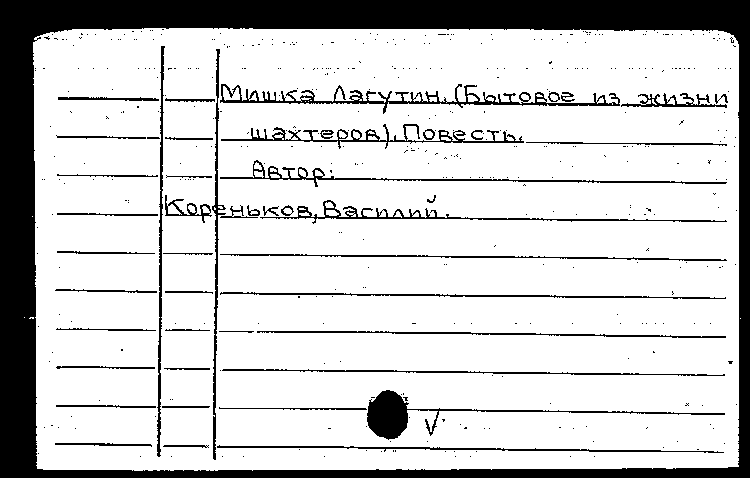 Мишка Лагутин. (Бытовое из жизни
шахтеров). Повесть.
Автор:
Кореньков, Василий.
V